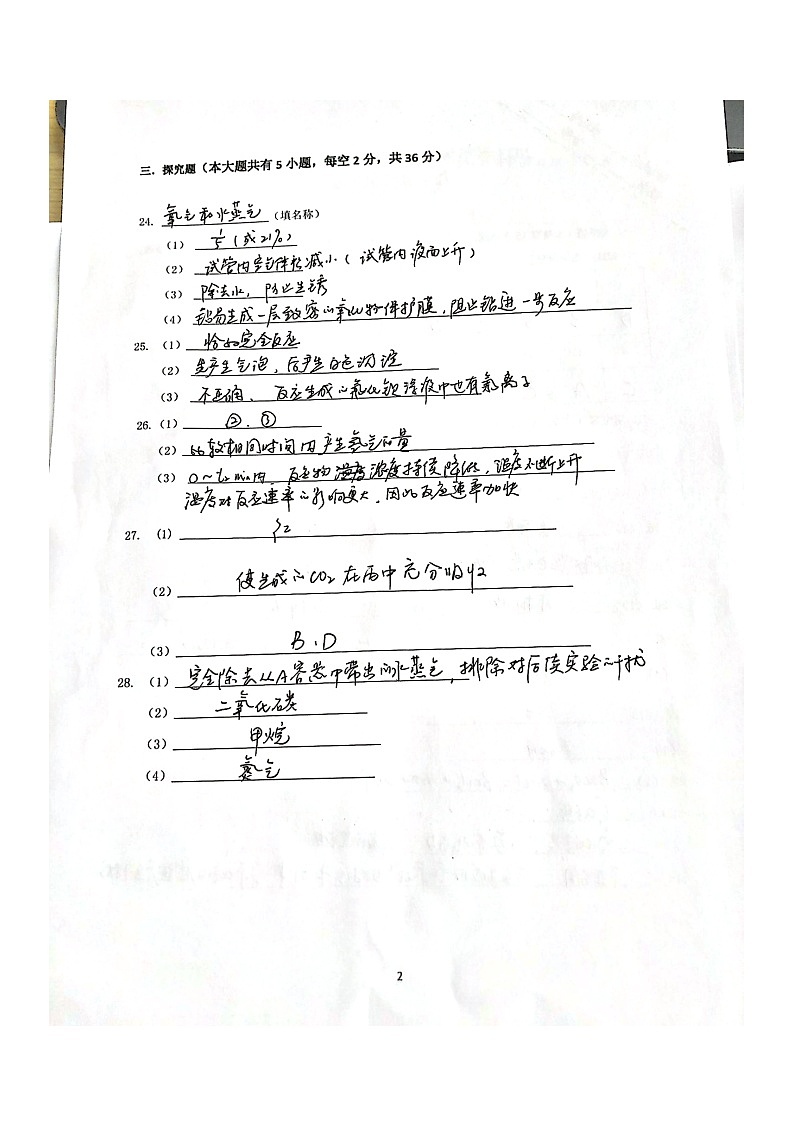 三．探究题（本大题共有 5 小题，每空 2 分，共 36 分）
24. 氧气和水蒸气（填名称）
（1） 1/5（或21%）
（2） 试管内空气体积减小（试管内液面上升）
（3） 除去水，防止生锈
（4） 铝易生成一层致密的氧化物保护膜，阻止铝进一步反应
25. （1） 恰好完全反应
（2） 先产生气泡，后产生白色沉淀
（3） 不正确、反应生成的氯化钡溶液中也有氯离子
26.（1） ②．③
（2） 比较相同时间内产生氢气的量
（3） 0～t₂ min内，反应物浓度持续降低，温度不断上升
温度对反应速率的影响更大，因此反应速率加快
27. （1）
（2） 使生成的CO₂在丙中充分吸收
（3） B、D
28. （1） 完全除去从A容器中带出的水蒸气，排除对后续实验的干扰
（2） 二氧化碳
（3） 甲烷
（4） 氢气
2